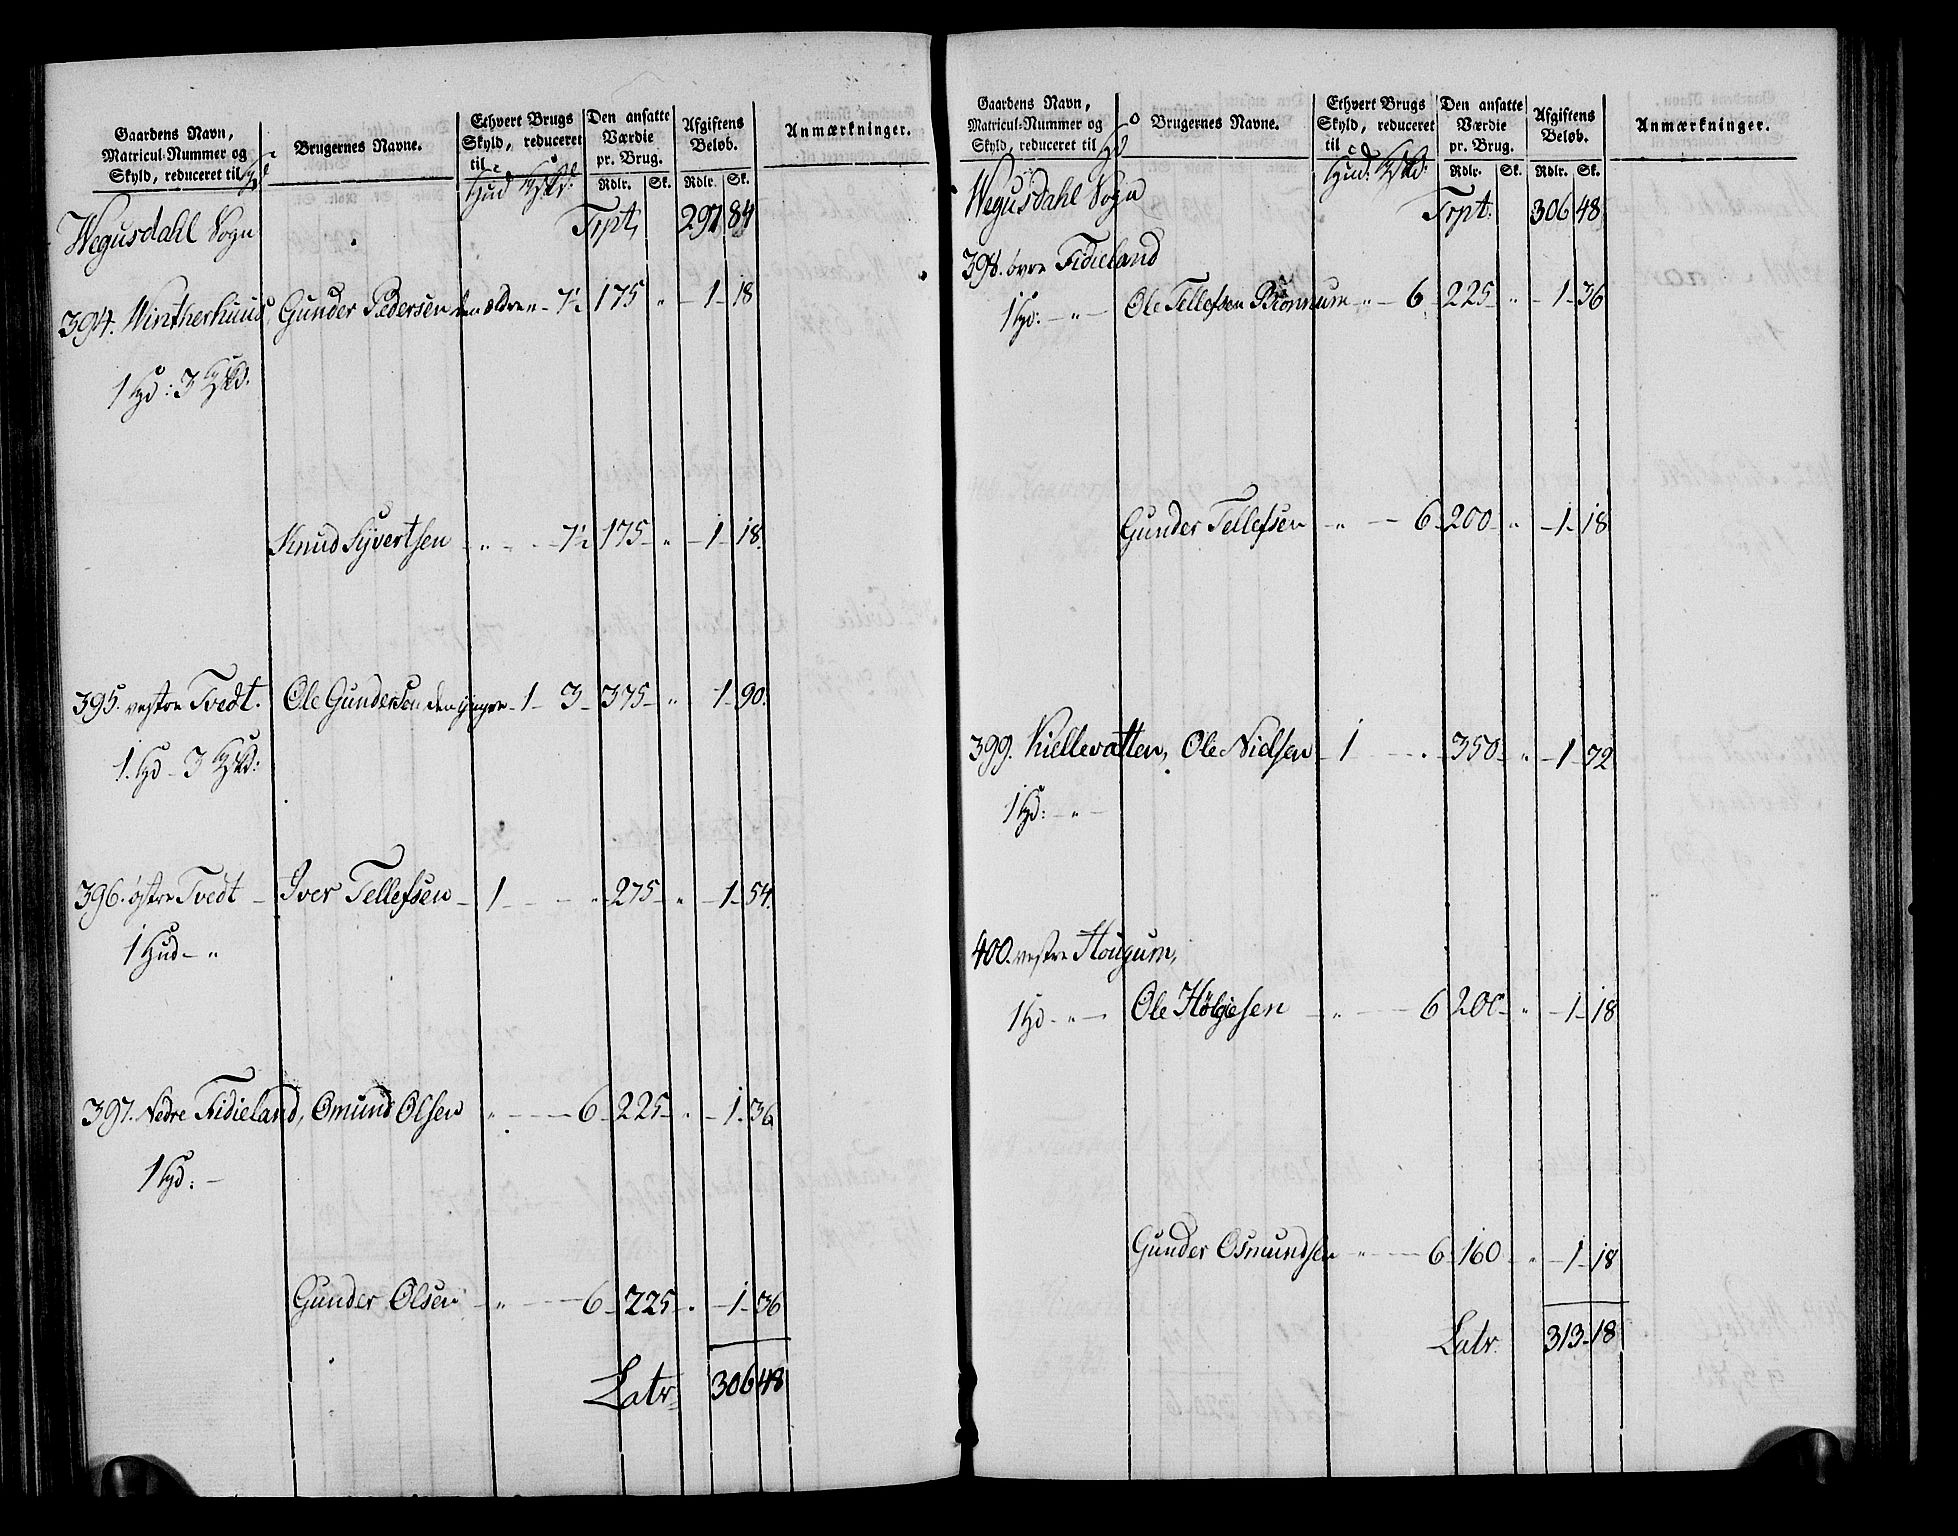 Gaardens Navn, Matricul-Nummer og Skyld, reduceret til Hd | Brugernes Navne. | Ethvert Brugs Skyld, reduceret til Hud | Den ansatte Værdie pr. Brug. Rdlr. Sk. | Afgiftens Beløb. Rdlr. Sk. | Anmærkninger.
Wegusdahl Sogn Trpt, 297 84
394. Wintherhuus, Gunder Pedersen den ældre " 7½ 175 " 1 18
1 Hd: 3
Knud Syvertsen " 7½ 175 " 1 18.
395. vestre Tvedt. Ole Gundersen den yngre 1 3 375 " 1 90.
1. Hd 3
396. østre Tvedt Iver Tellefsen 1 " 275 " 1 54.
1 Hud "
397. Nedre Fidieland, Omund Olsen " 6 225 " 1 36
1 Hd:
Gunder Olsen " 6 225 " 1 36
Latr 306 48
Gaardens Navn, Matricul-Nummer og Skyld, reduceret til Hd | Brugernes Navne. | Ethvert Brugs Skyld, reduceret til Hud. | Den ansatte Værdie pr. Brug. Rdlr. Sk. | Afgiftens Beløb. Rdlr. Sk. | Anmærkninger.
Wegusdahl Sogn Trpt: 306 48
398. øvre Fidieland
1 Hd: " Ole Tellefsen Bronnum " 6 225 " 1 36
Gunder Tellefsen " 6 200 " 1 18
399. Kiellevatten, Ole Nielsen 1 " 350 " 1 72
1 Hd: "
400. vestre Hougum,
1 Hd " Ole Hølgesen " 6 200 " 1 18
Gunder Osmundsen " 6 160 " 1 18
Latr. 313 18